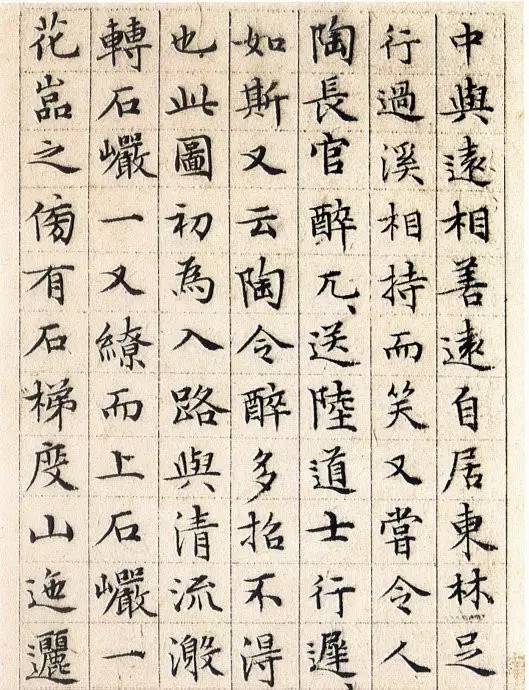 中與遠相善遠自居東林足
行過溪相持而笑又嘗令人
陶長官醉兀、送陸道士行遲、
如斯又云陶令醉多招不得
也此圖初為入路與清流激
轉石巗一又繚而上石巗一
花嵓之傍有石梯度山迤邐